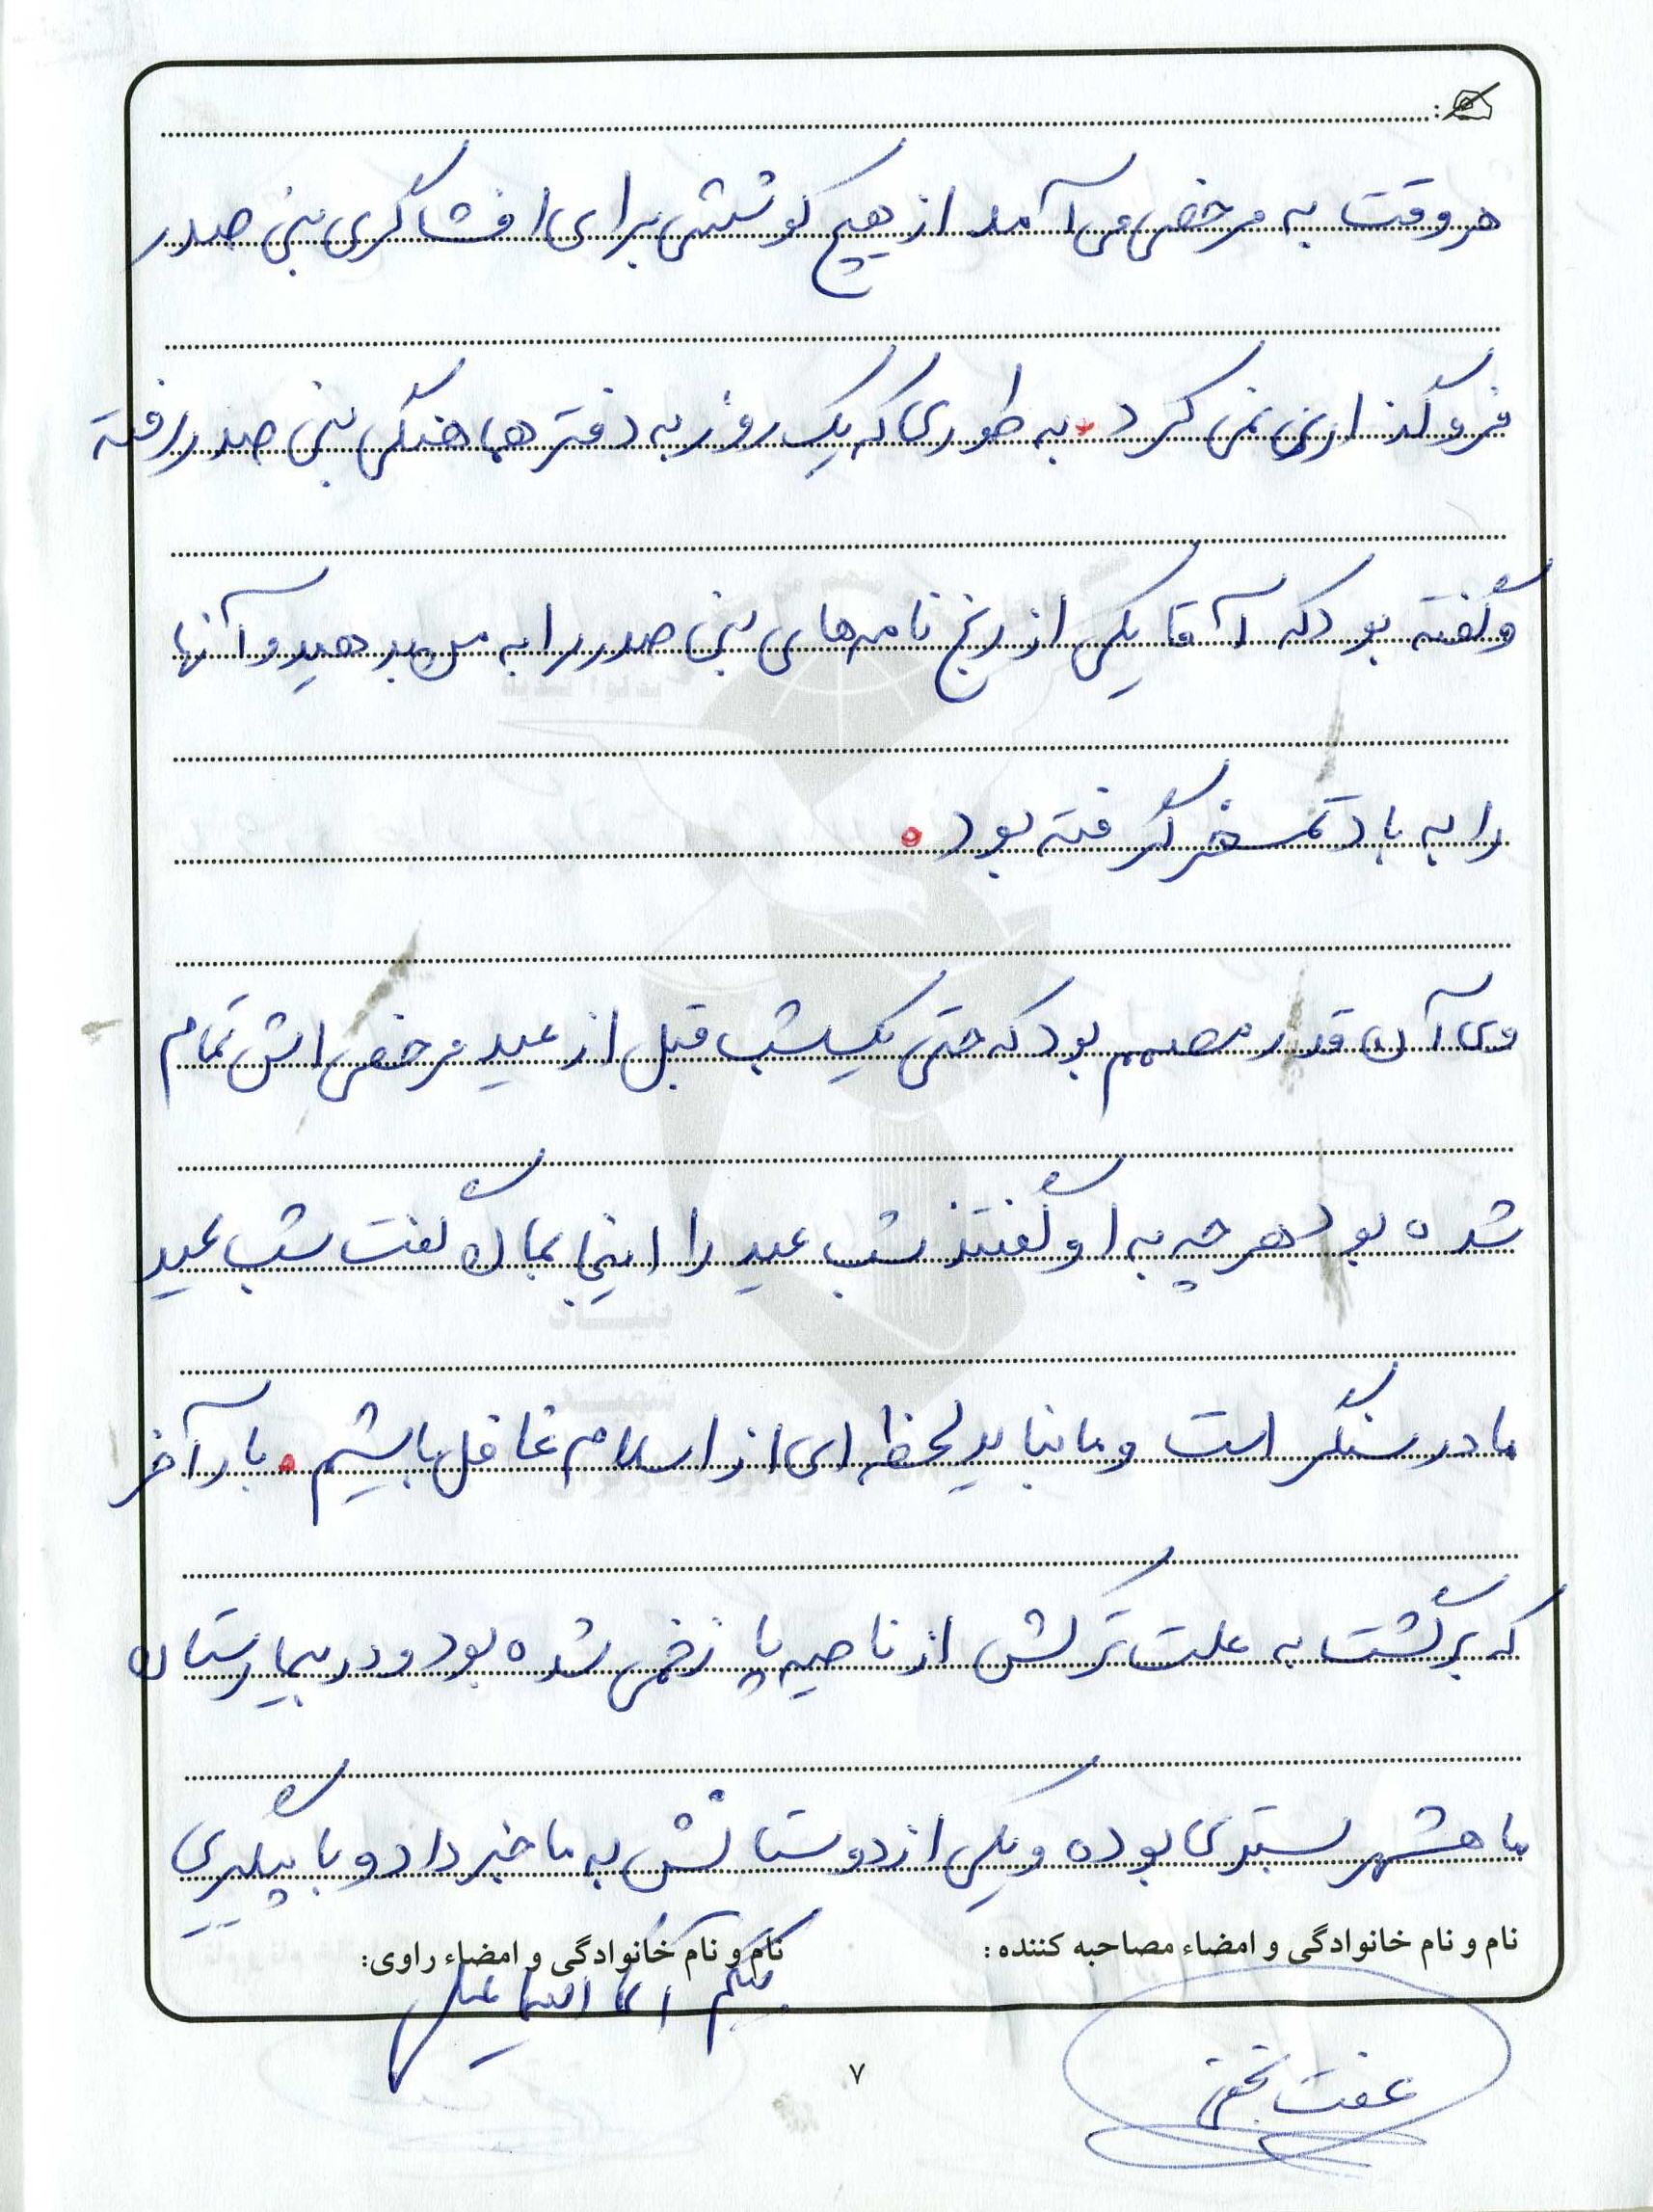 هر وقت به مرخصی می آمد از هیچ کوششی برای افشاگری بنی صدر
فروگذاری نمی کرد. به طوری که یک روز به دفتر هماهنگی بنی صدر رفته
و گفته بود که آقا یکی از رنج نامه های بنی صدر را به من بدهید و آنها
را به باد تمسخر گرفته بود.
وی آن قدر مصمم بود که حتی یک شب قبل از عید مرخصی اش تمام
شده بود هر چه به او گفتند شب عید را اینجا بمان گفت شب عید
ما در سنگر است و ما نباید لحظه ای از اسلام غافل باشیم. بار آخر
که برگشت به علت ترکش از ناحیه پا زخمی شده بود و در بیمارستان
ماهشهر بستری بوده و یکی از دوستانش به ما خبر داد و با پیگیری
نام و نام خانوادگی و امضاء مصاحبه کننده:
نام و نام خانوادگی و امضاء راوی:
عفت
۷